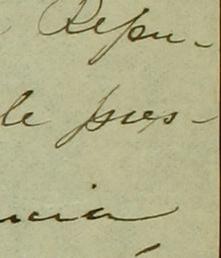 Repu-
le pres-
ncia